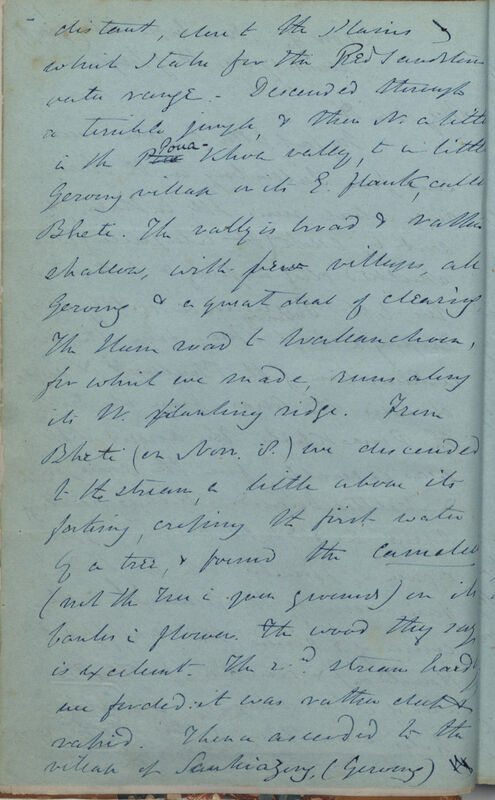 distant, close to the plains,
which I take for the Red Sandstone
outer range. - Descended through
a terrible jungle, & then N. a little
in the Poua- Khoa valley, to a little
Geroong village on its E. flank, called
Bheti. The valley is broad & rather
shallow, with few villages, all
Geroong & a great deal of clearing
The Ilum road to
for which we made, runs along
its W. flanking ridge. From
Bheti (on Nov. 8.) we descended
to the stream, a little above its
forking, crossing the first water
by a tree, & found the Camelia
(not the Tree in your grounds) on its
banks in flower. The wood they say
is excellent. The 2nd stream hard
we forded: it was rather deep &
rapid. Thence ascended to the
village of (Geroong)